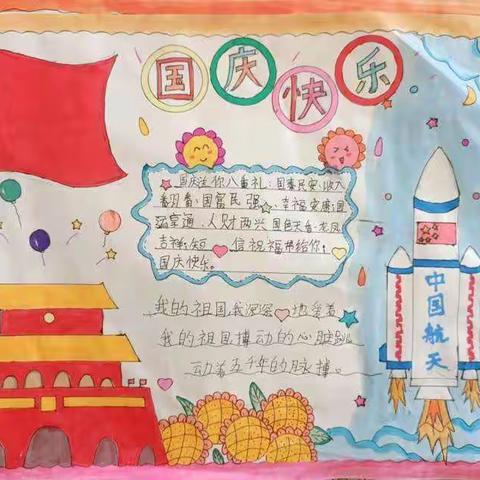 国庆快乐
国庆送你八重礼：国泰民安，收入
翻番，国富民强，幸福安康，国
运亨通，人财两兴，国色天香，龙凤
吉祥；短信祝福带给你：
国庆快乐。
我的祖国我深深地爱着
我的祖国搏动的心脏跳
动着五千年的脉搏。
中国航天